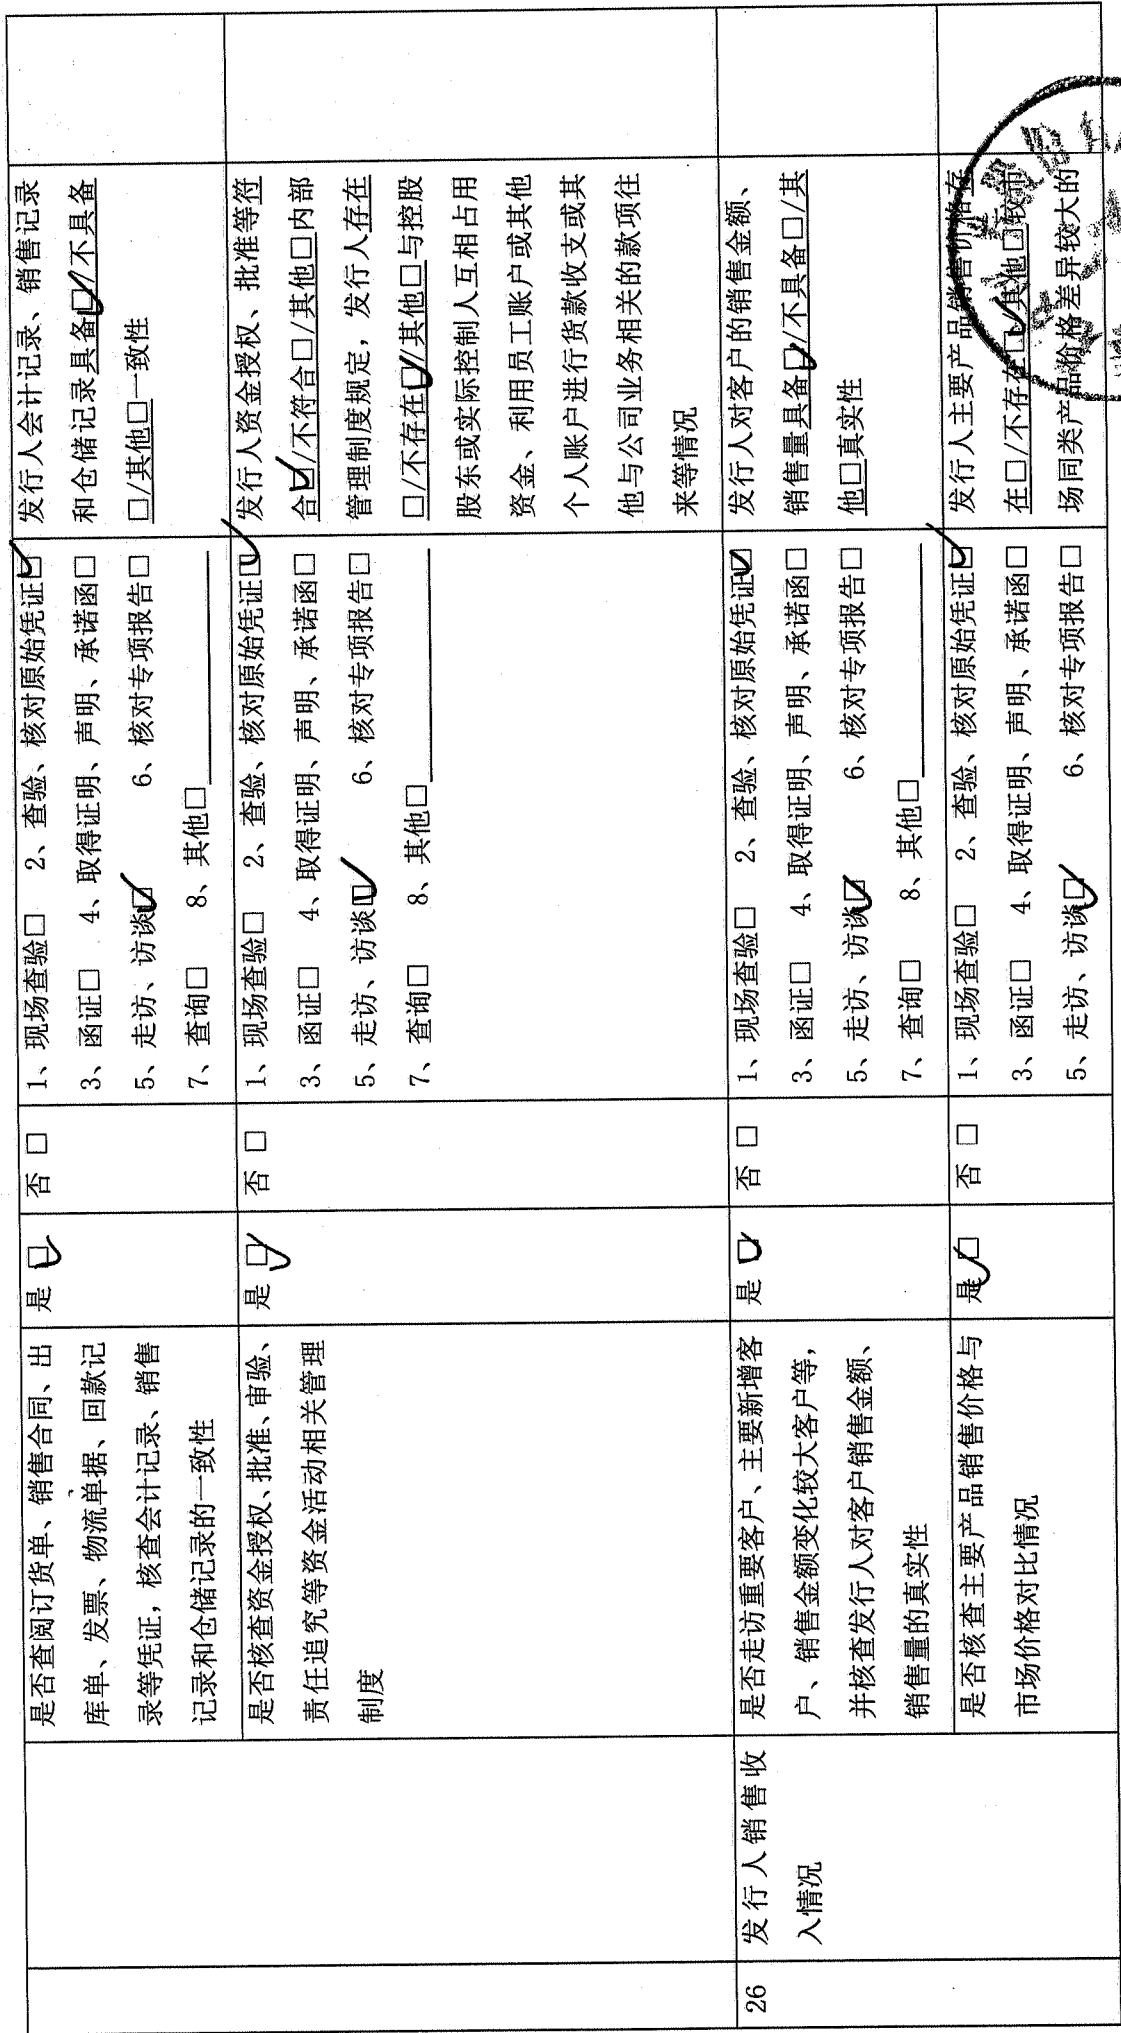 是否查阅订货单、销售合同、出
库单、发票、物流单据、回款记
录等凭证，核查会计记录、销售
记录和仓储记录的一致性
是 ☑
否 □
1、现场查验□ 2、查验、核对原始凭证☑
3、函证□ 4、取得证明、声明、承诺函□
5、走访、访谈☑ 6、核对专项报告□
7、查询□ 8、其他□
发行人会计记录、销售记录
和仓储记录具备☑/不具备
□/其他□一致性
是否核查资金授权、批准、审验、
责任追究等资金活动相关管理
制度
是 ☑
否 □
1、现场查验□ 2、查验、核对原始凭证☑
3、函证□ 4、取得证明、声明、承诺函□
5、走访、访谈☑ 6、核对专项报告□
7、查询□ 8、其他□
发行人资金授权、批准等符
合☑/不符合□/其他□内部
管理制度规定，发行人存在
□/不存在☑/其他□与控股
股东或实际控制人互相占用
资金、利用员工账户或其他
个人账户进行货款收支或其
他与公司业务相关的款项往
来等情况
26
发行人销售收
入情况
是否走访重要客户、主要新增客
户、销售金额变化较大客户等，
并核查发行人对客户销售金额、
销售量的真实性
是 ☑
否 □
1、现场查验□ 2、查验、核对原始凭证☑
3、函证□ 4、取得证明、声明、承诺函□
5、走访、访谈☑ 6、核对专项报告□
7、查询□ 8、其他□
发行人对客户的销售金额、
销售量具备☑/不具备□/其
他□真实性
是否核查主要产品销售价格与
市场价格对比情况
是 ☑
否 □
1、现场查验□ 2、查验、核对原始凭证☑
3、函证□ 4、取得证明、声明、承诺函□
5、走访、访谈☑ 6、核对专项报告□
发行人主要产品销售价格存
在□/不存在☑/其他□较市
场同类产品价格差异较大的